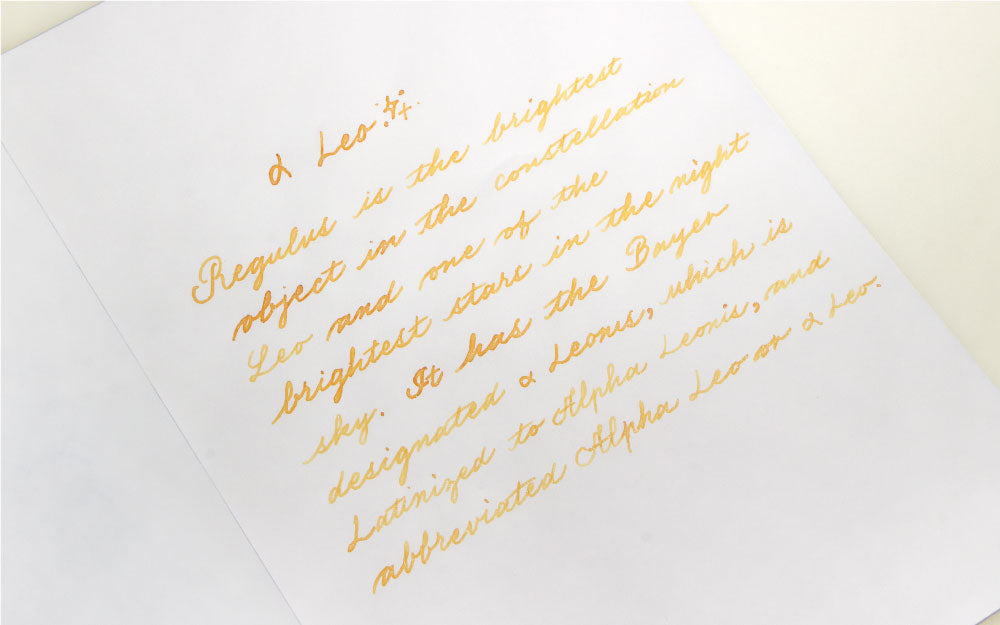 α Leo
Regulus is the brightest
object in the constellation
Leo and one of the
brightest stars in the night
sky. It has the Bayer
designated α Leonis, which is
Latinized to Alpha Leonis, and
abbreviated Alpha Leo or α Leo.